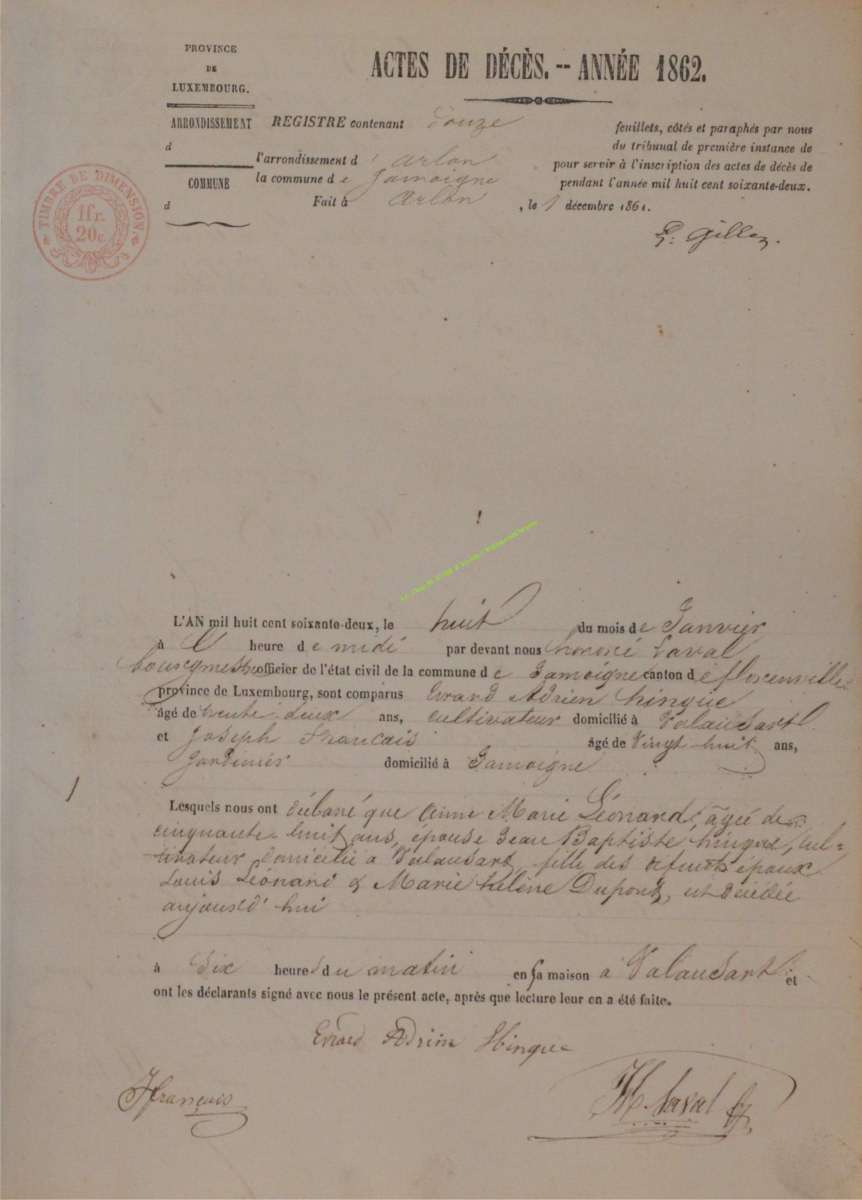 PROVINCE
DE
LUXEMBOURG.
ACTES DE DÉCÈS. -- ANNÉE 1862.
ARRONDISSEMENT
d
COMMUNE
d
TIMBRE DE DIMENSION.
1fr.
20c.
REGISTRE contenant Douze feuillets, côtés et paraphés par nous
du tribunal de première instance de
l'arrondissement d'arlon pour servir à l'inscription des actes de décès de
la commune de Jamoigne pendant l'année mil huit cent soixante-deux.
Fait à Arlon, le 1 décembre 1861.
L'AN mil huit cent soixante-deux, le huit du mois de Janvier
à heure de midi par devant nous honoré Laval
bourgmestre officier de l'état civil de la commune de Jamoigne canton de florenville
province de Luxembourg, sont comparus Evrard Adrien hinque
âgé de trente deux ans, cultivateur domicilié à Valansart
et Joseph Francais âgé de Vingt huit ans,
Jardinier domicilié à Jamoigne
Lesquels nous ont déclaré que Anne Marie Léonard, agée de
cinquante huit ans, épouse Jean Baptiste hinque, cul=
tivateur domicilié a Valansart, fille des défunts époux
Louis Léonard & Marie hélène Dupont, est décédée
aujourd'hui
à Six heures du matin en sa maison a Valansart et
ont les déclarants signé avec nous le présent acte, après que lecture leur en a été faite.
Evrard Adrien Hinque
J françois
H. Laval